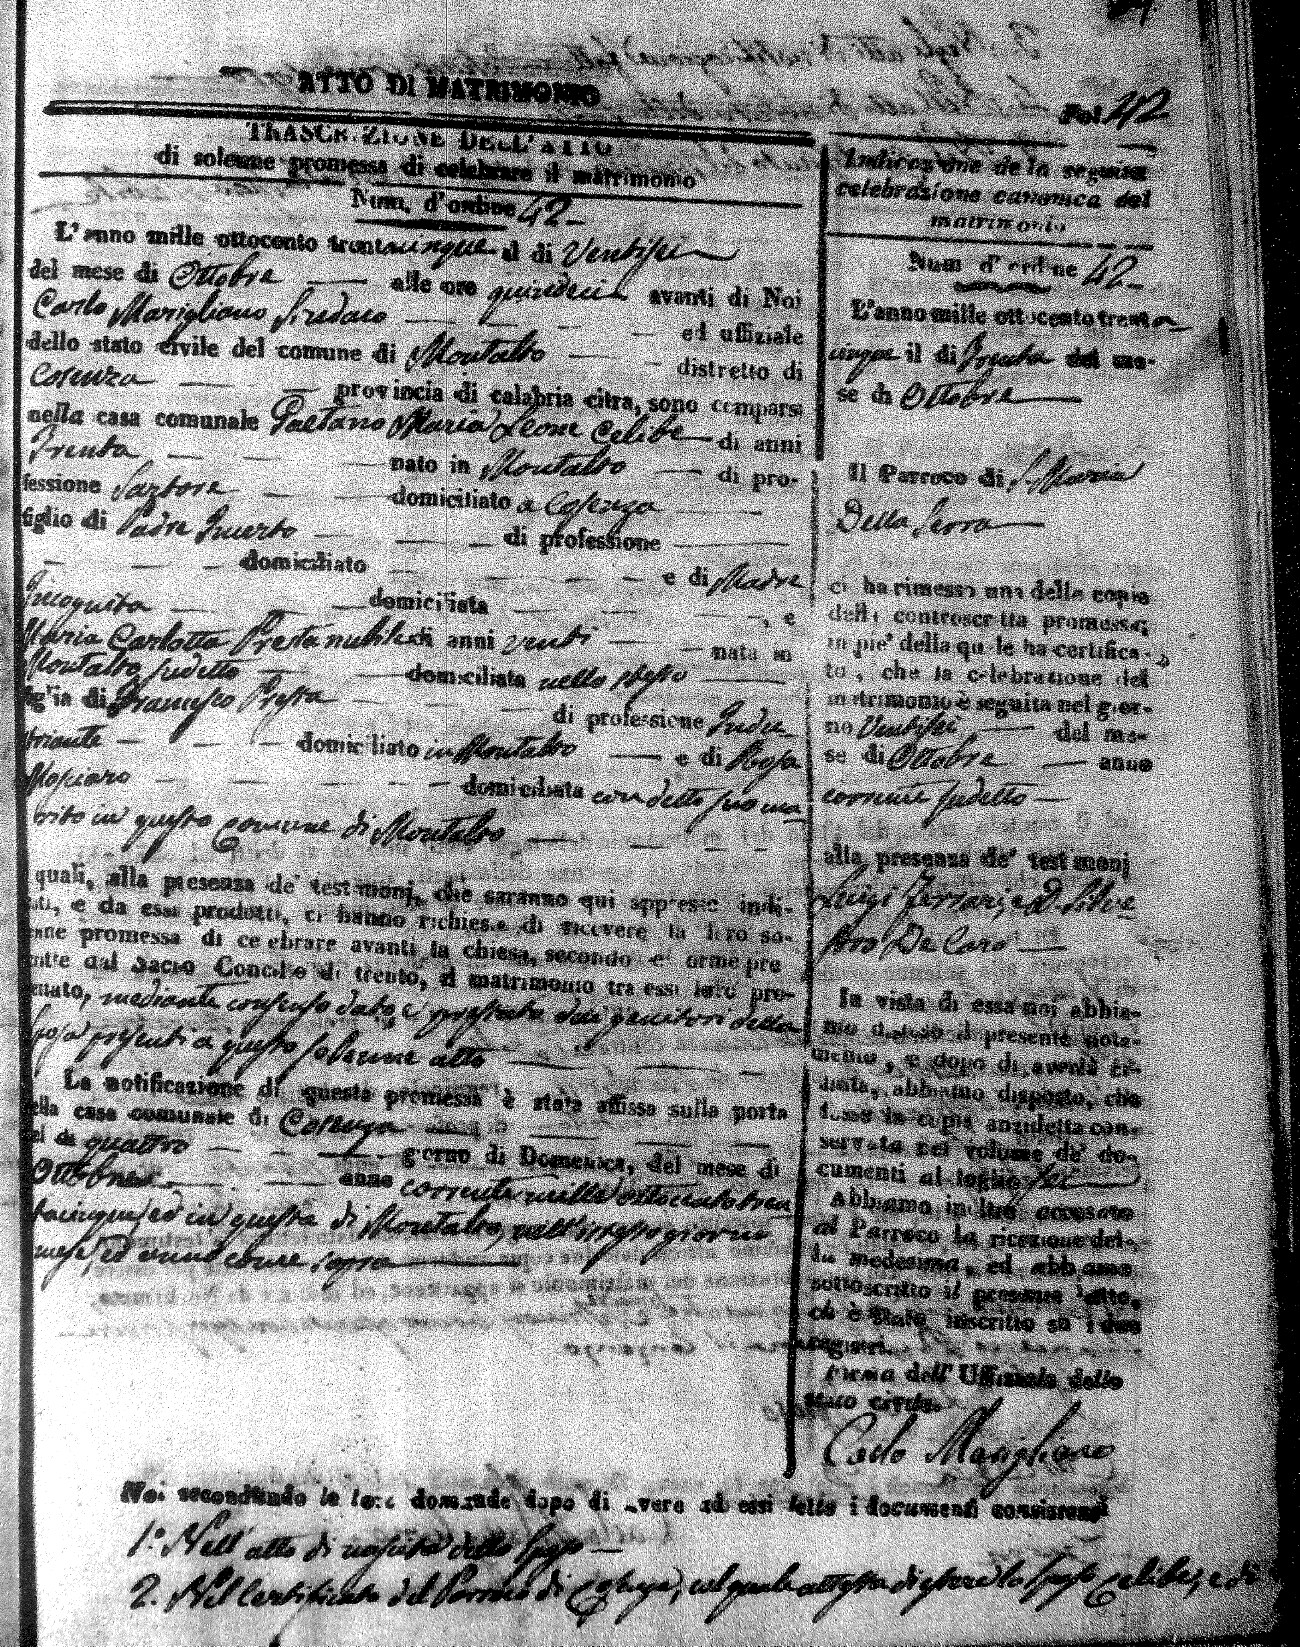 ATTO DI MATRIMONIO
Fol. 42
TRASCRIZIONE DELL'ATTO
di solenne promessa di celebrare il matrimonio
Num. d'ordine 42
L'anno mille ottocento trentacinque il di Ventisei
del mese di Ottobre alle ore quindeci avanti di Noi
Carlo Marigliano Sindaco ed uffiziale
dello stato civile del comune di Montalto distretto di
Cosenza provincia di calabria citra, sono comparsi
nella casa comunale Gaetano Maria Leone Celibe di anni
Trenta nato in Montalto di pro-
fessione Sartore domiciliato a Cosenza
figlio di Padre Incerto di professione
domiciliato e di Madre
Incognita domiciliata , e
Maria Carlotta Presta nubile di anni venti nata in
Montalto sudetto domiciliata nello stesso
figlia di Francesco Presta di professione Indu
striante domiciliato in Montalto e di Rosa
domiciliata con detto suo ma
rito in questo Comune di Montalto
quali, alla presenza de' testimonj, che saranno qui appresso indi-
ati, e da essi prodotti, ci hanno richiesto di ricevere la loro so-
enne promessa di celebrare avanti la chiesa, secondo le forme pre
ritte dal Sacro Concilio di trento, il matrimonio tra essi loro pro-
ettato, mediante consenso dato, e prestato dai genitori della
sposa presenti a questo solenne atto
La notificazione di questa promessa è stata affissa sulla porta
della casa comunale di Cosenza
el di quattro giorno di Domenica, del mese di
Ottobre anno corrente mille ottocento tren
tacinque, ed in questa di Montalto, nell'istesso giorno
mese, ed anno come sopra
Indicazione de la seguita
celebrazione canonica del
matrimonio
Num d'ordine 42
L'anno mille ottocento trenta
cinque il di Trenta del me-
se di Ottobre
Il Parroco di S. Maria
Della Serra
ci ha rimesso una delle copie
della controscritta promessa,
in piè della quale ha certifica-
to, che la celebrazione del
matrimonio è seguita nel gior-
no Ventisei del me-
se di Ottobre anno
corrente sudetto
alla presenza de' testimonj
Luigi Ferrari, e D. Salva
tore De Caro
In vista di essa noi abbia-
mo disteso il presente nota-
mento, e dopo di averla ci-
frata, abbiamo disposto, che
fosse la copia anzidetta con-
servata nel volume de' do-
cumenti al foglio sei
Abbiamo inoltre accusato
al Parroco la ricezione del-
la medesima, ed abbiamo
sottoscritto il presente atto,
ch è stato inscritto su i due
registri.
Firma dell' Uffiziale dello
stato civile.
Carlo Marigliano
Noi secondando le loro domande dopo di avere ad essi letto i documenti consistenti
1.º Nell'atto di nascita dello sposo
2. Nel Certificato del Parroco di Cosenza, col quale attesta di essere lo sposo Celibe, e di